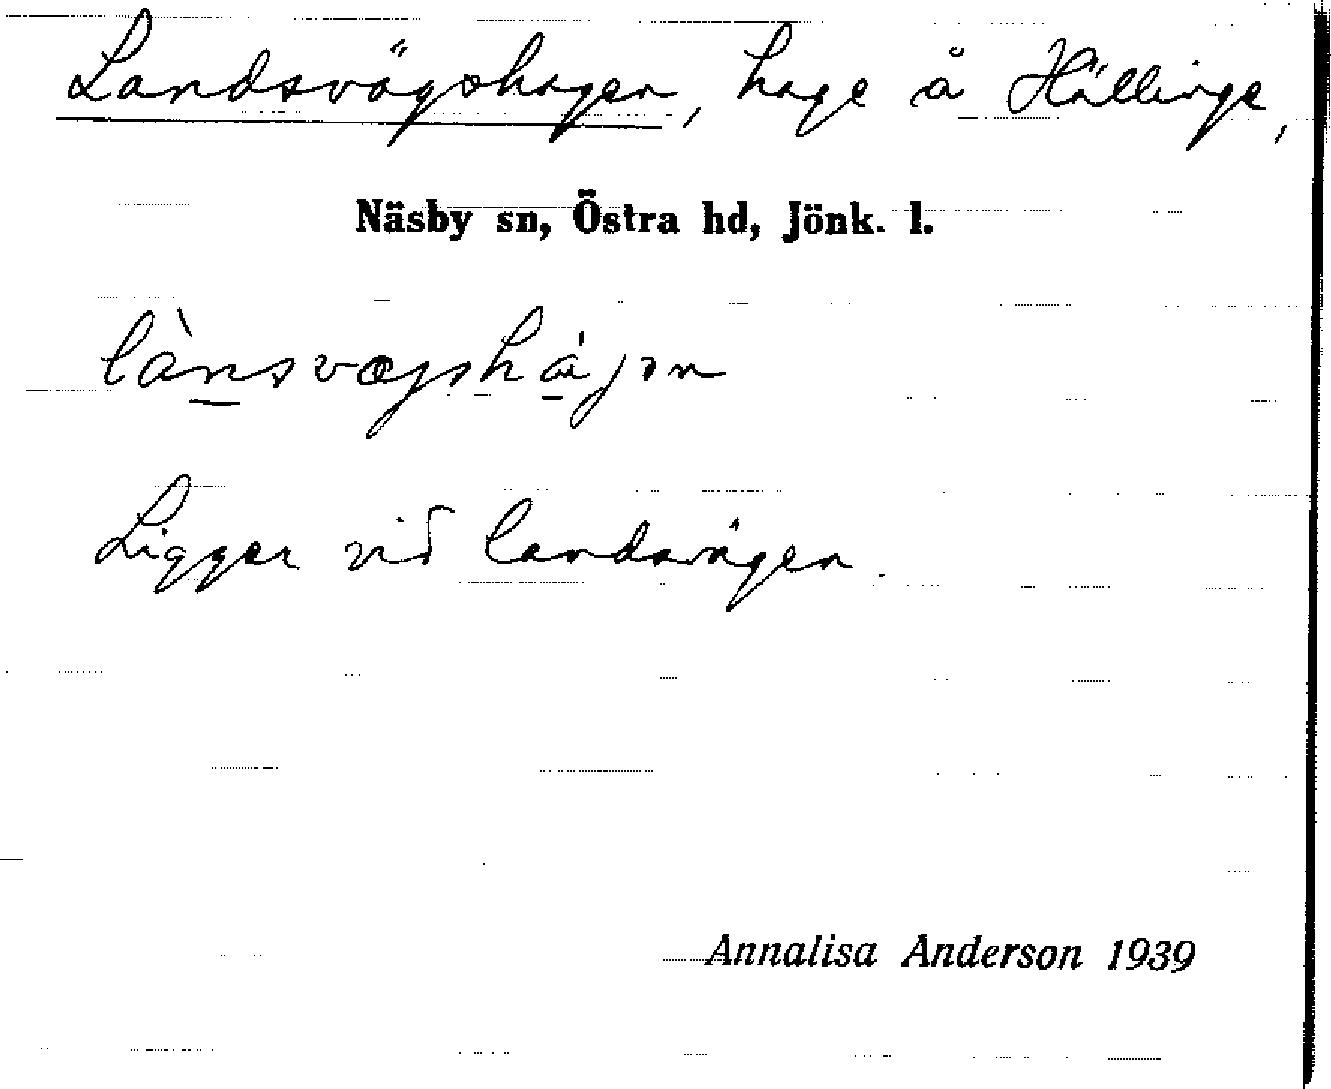 Landsvägshagen, hage å Hällinge,
Näsby sn, Östra hd, Jönk. l.
Ligger vid landsvägen.
Annalisa Anderson 1939